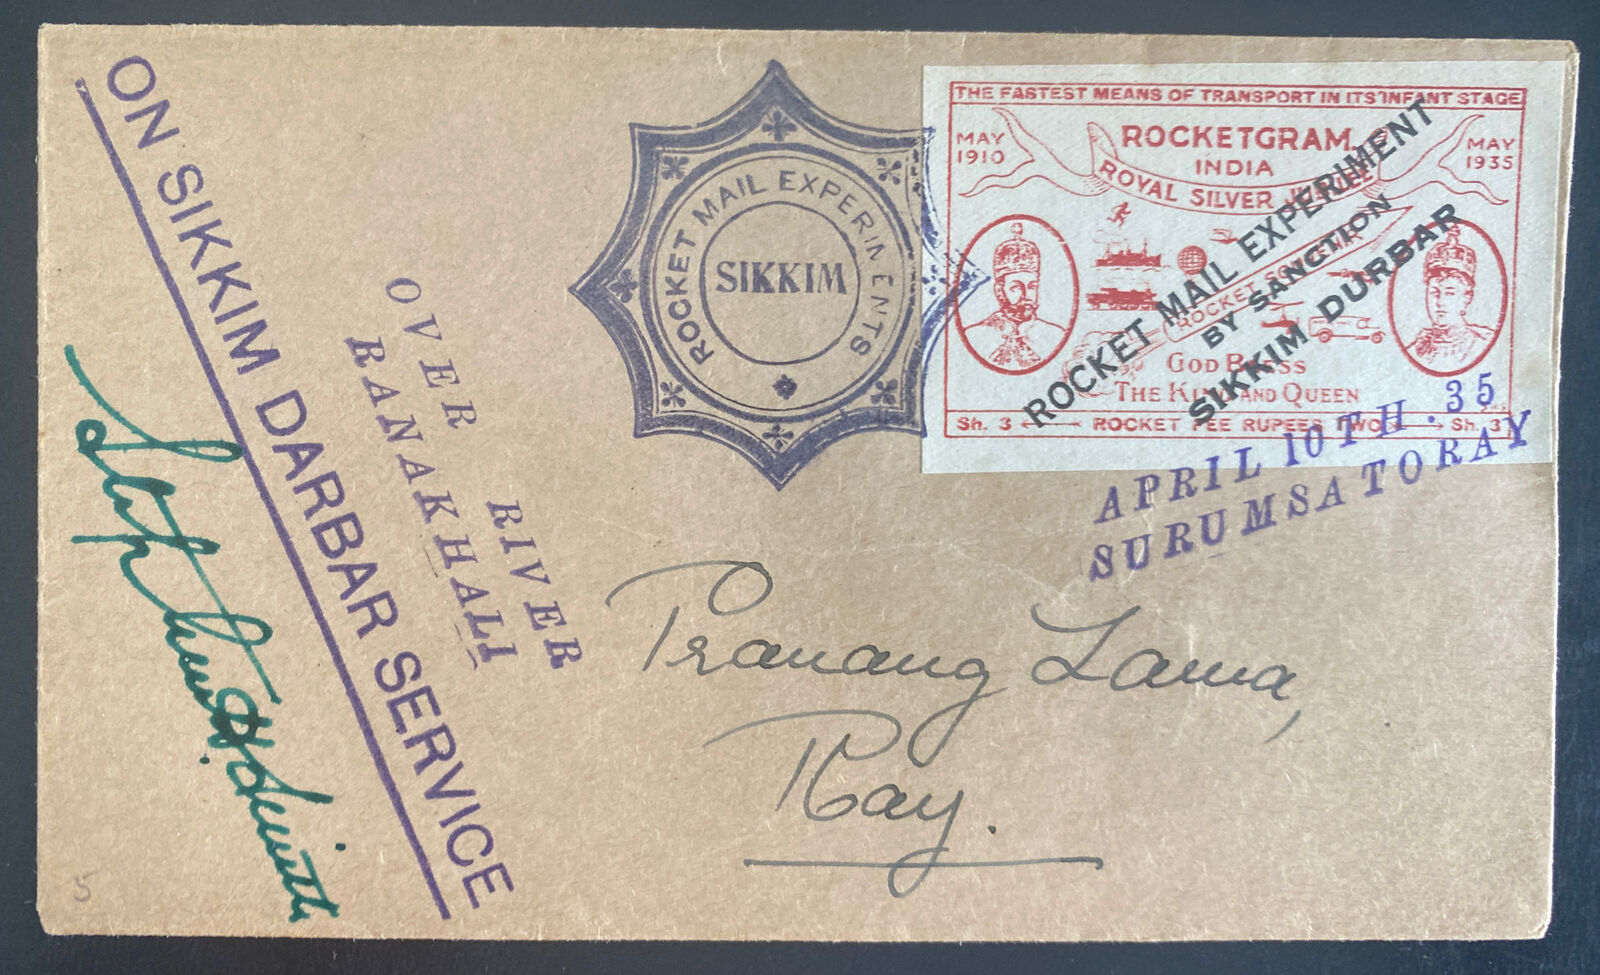 ON SIKKIM DARBAR SERVICE
OVER RIVER
RANAKHALI
ROCKET MAIL EXPERIMENTS
SIKKIM
THE FASTEST MEANS OF TRANSPORT IN ITS INFANT STAGE
MAY
1910
ROCKETGRAM
INDIA
MAY
1935
ROYAL SILVER
ROCKET MAIL EXPERIMENT
BY SANCTION
SIKKIM DURBAR
ROCKET
GOD BLESS
THE KING AND QUEEN
Sh. 3 ROCKET FEE RUPEES TWO Sh. 3
APRIL 10TH. 35
SURUMSA TO RAY
Pranang Lama,
Ray.
Stephen H. Smith
5